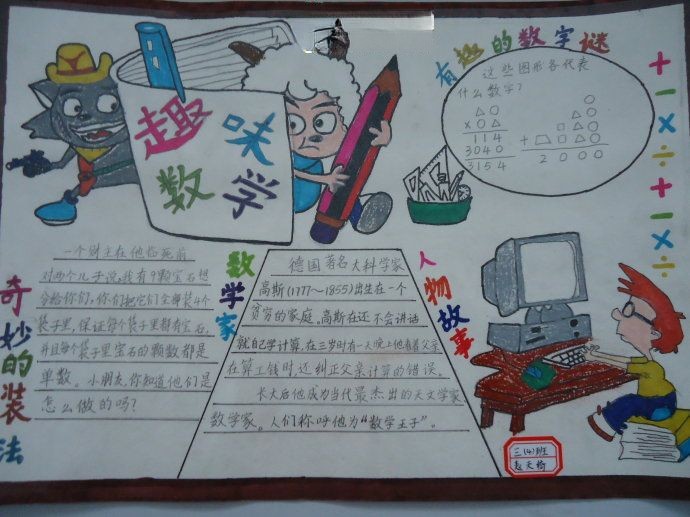 趣味
数学
有趣的数字谜
这些图形各代表
什么数字?
△○
×○△
114
3040
3154
○
△○
□△○
+□△○
2000
+-×÷+-×÷
奇妙的装法
一个财主在他临死前
对两个儿子说,我有9颗宝石想
分给你们,你们把它们全部装4个
袋子里,保证每个袋子里都有宝石,
并且每个袋子里宝石的颗数都是
单数。小朋友,你知道他们是
怎么做的吗?
数学家
德国著名大科学家
高斯(1777~1855)出生在一个
贫穷的家庭。高斯在还不会讲话
就自己学计算,在三岁时有一天晚上他看着父亲
在算工钱时,还纠正父亲计算的错误。
长大后他成为当代最杰出的天文学家
数学家。人们称呼他为“数学王子”。
人物故事
三(4)班
赵天